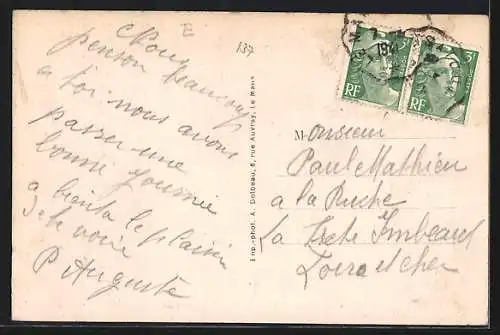 E
137
Nous
pensons beaucoup
a toi nous avons
passer une
bonne journée
a bientot le plaisir
de te voir
P Auguste
Imp.-phot. A. Dolbeau, 6, rue Auvray, Le Mans
RF
RF
Monsieur
Paul Mathieu
a la Ruche
La Imbeault
Loire et cher